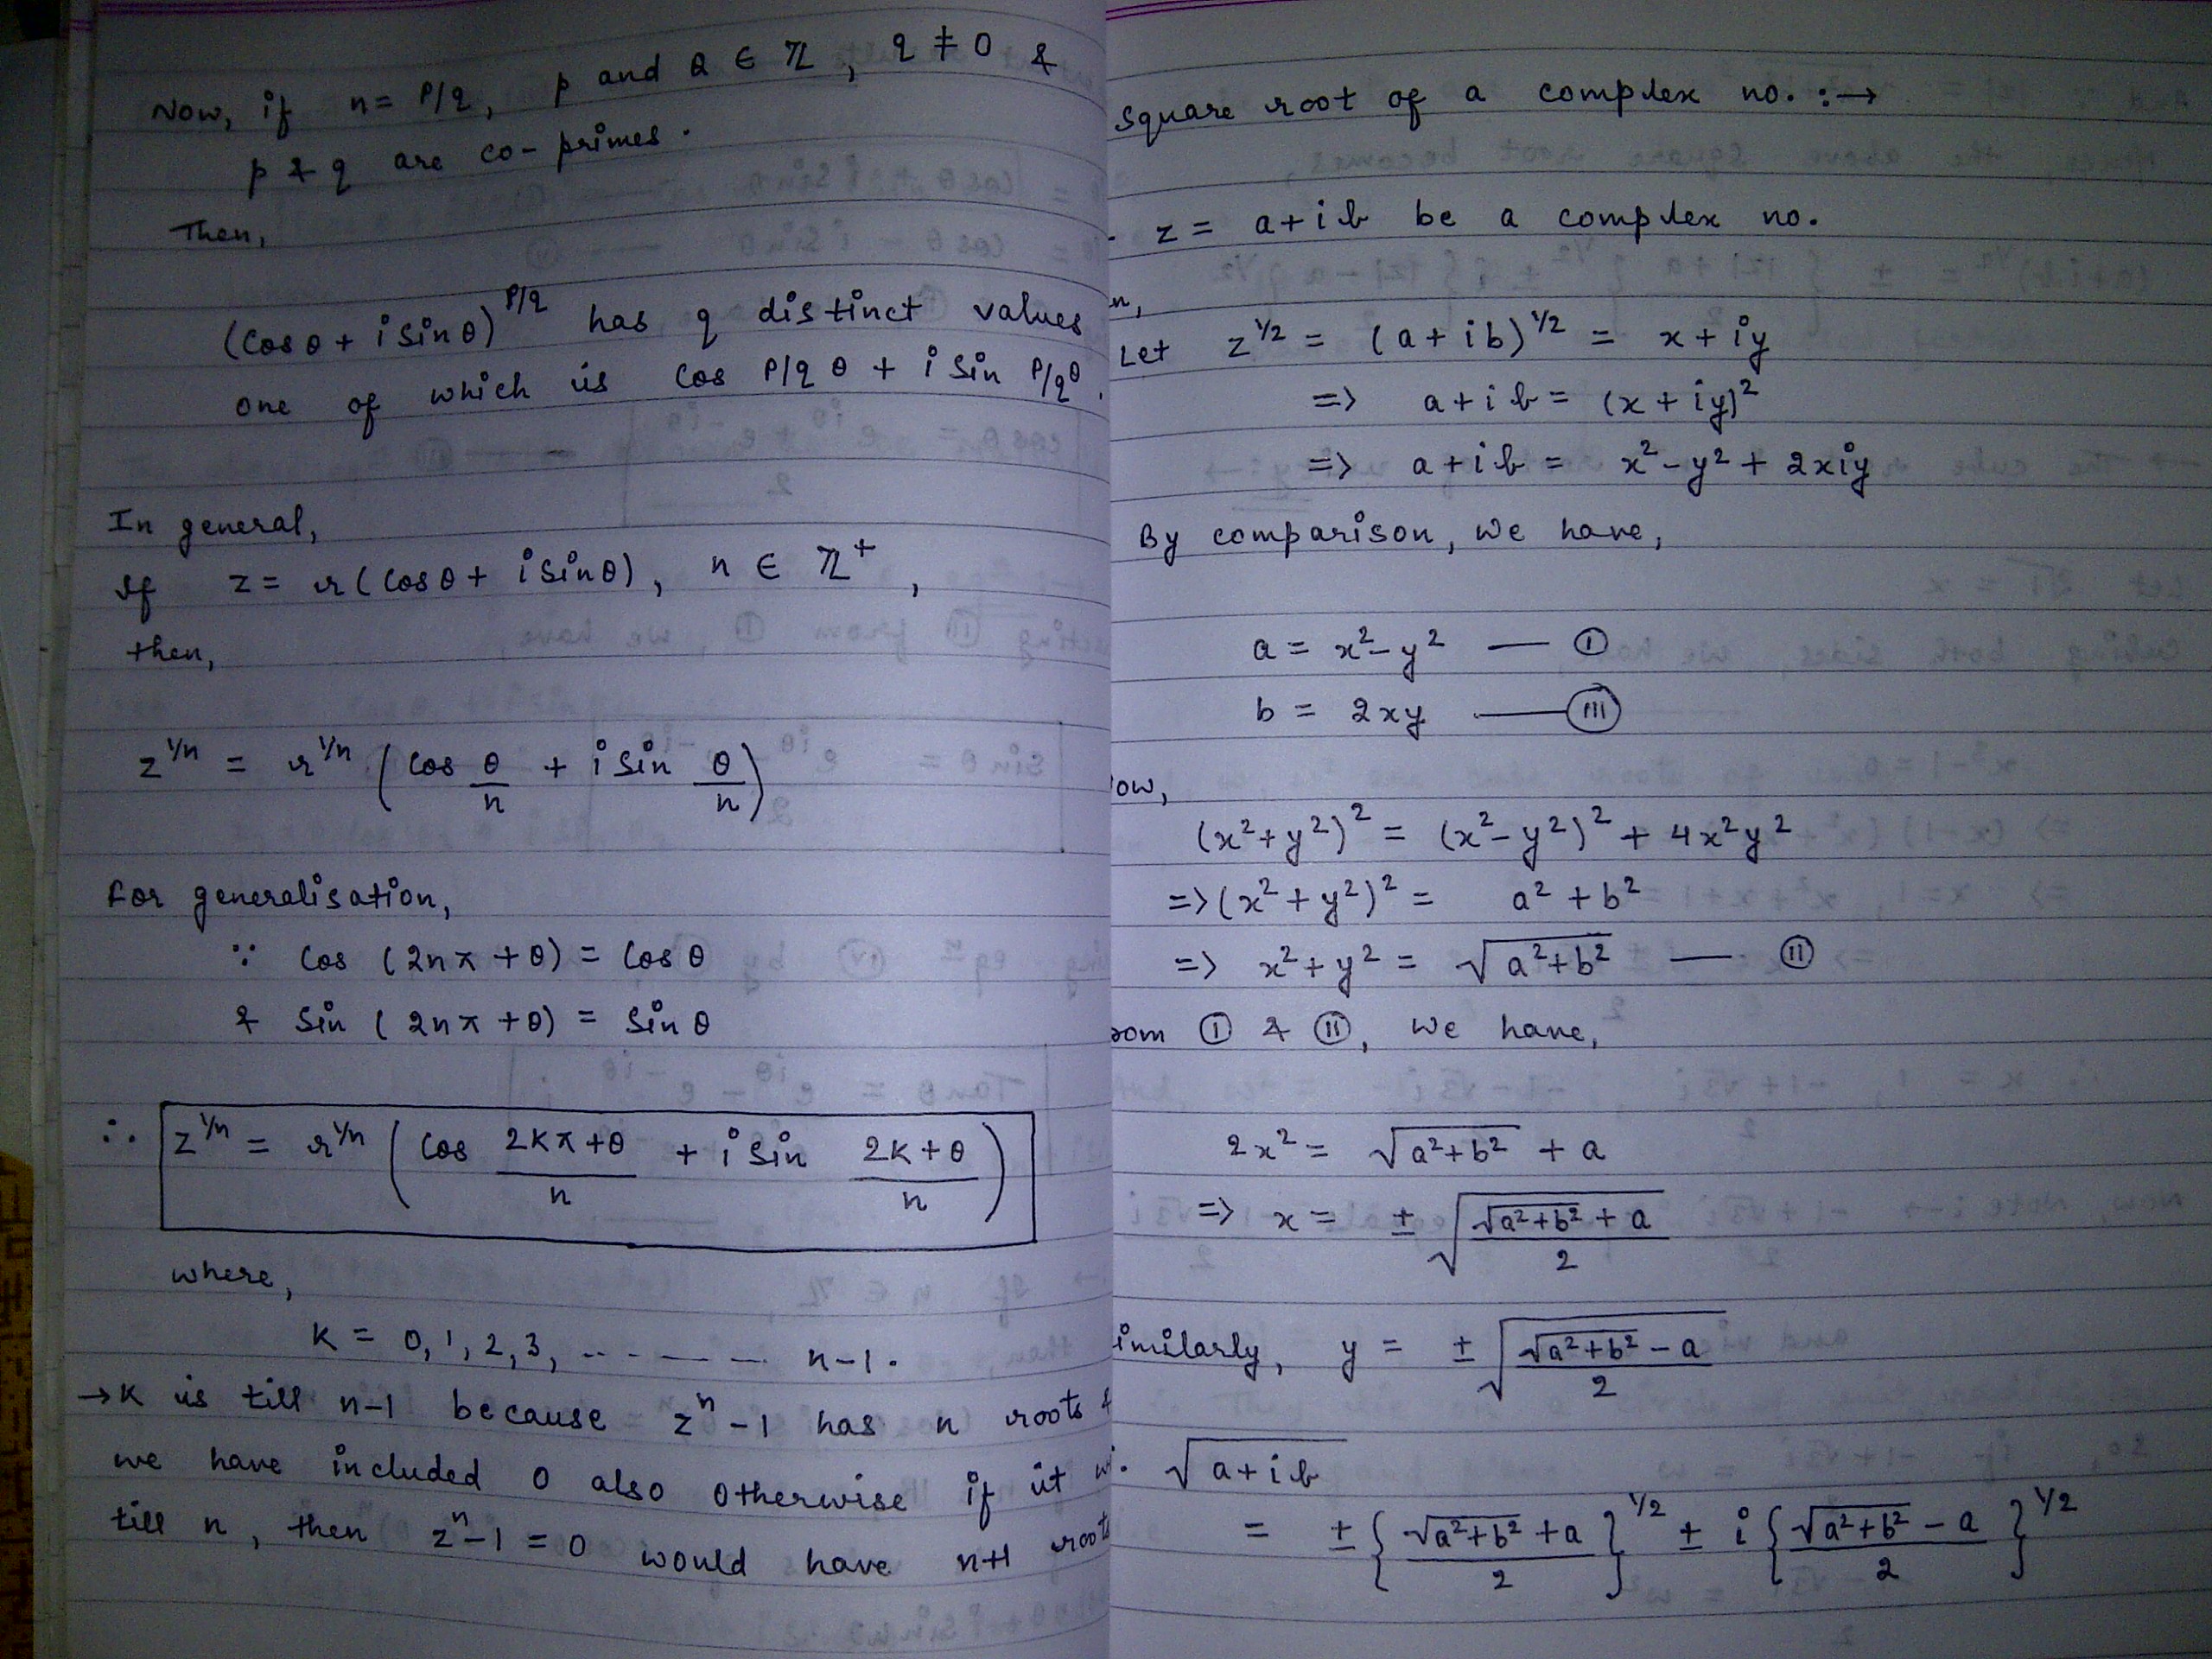 Now, if n = p/q, p and q ∈ Z, q ≠ 0 &
p & q are co-primes.
Then,
(cosθ + i sinθ)^p/q has q distinct values
one of which is cos p/q θ + i sin p/q θ.
In general,
If z = r(cosθ + i sinθ), n ∈ Z⁺,
then,
z^1/n = r^1/n (cos θ/n + i sin θ/n)
For generalisation,
∵ cos (2nπ + θ) = cosθ
& sin (2nπ + θ) = sinθ
∴ z^1/n = r^1/n (cos (2kπ+θ)/n + i sin (2k+θ)/n)
where,
K = 0, 1, 2, 3, ------ n-1.
→ K is till n-1 because zⁿ - 1 has n roots &
we have included 0 also otherwise if it
till n, then zⁿ - 1 = 0 would have n+1 root
Square root of a complex no. :→
z = a + ib be a complex no.
Let z^1/2 = (a + ib)^1/2 = x + iy
=> a + ib = (x + iy)²
=> a + ib = x² - y² + 2xiy
By comparison, we have,
a = x² - y² — (I)
b = 2xy — (III)
ow,
(x² + y²)² = (x² - y²)² + 4x²y²
=> (x² + y²)² = a² + b²
=> x² + y² = √(a² + b²) — (II)
rom (I) & (II), we have,
2x² = √(a² + b²) + a
=> x = ± √((√(a² + b²) + a)/2)
imilarly, y = ± √((√(a² + b²) - a)/2)
∴ √(a + ib)
= ± {(√(a² + b²) + a)/2}^1/2 ± i {(√(a² + b²) - a)/2}^1/2